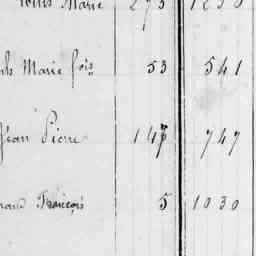 Marie 273 1250
Marie fois 53 541
Jean Pierre 147 747
François 5 1030